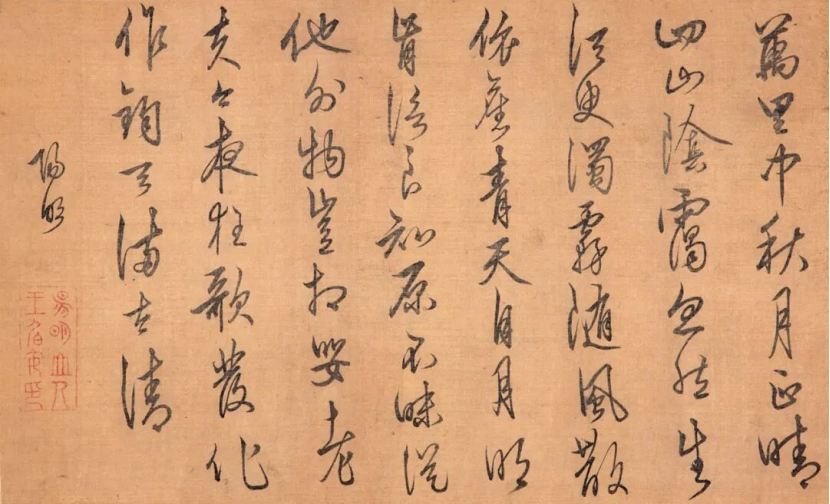 萬里中秋月正晴
四山陰靄忽然生
須臾濁霧隨風散
依舊青天自月明
肯信良知原不昧從
他外物豈相嬰老
夫今夜狂歌發化
作鈞天滿太清
陽明
陽明山人
王伯安印